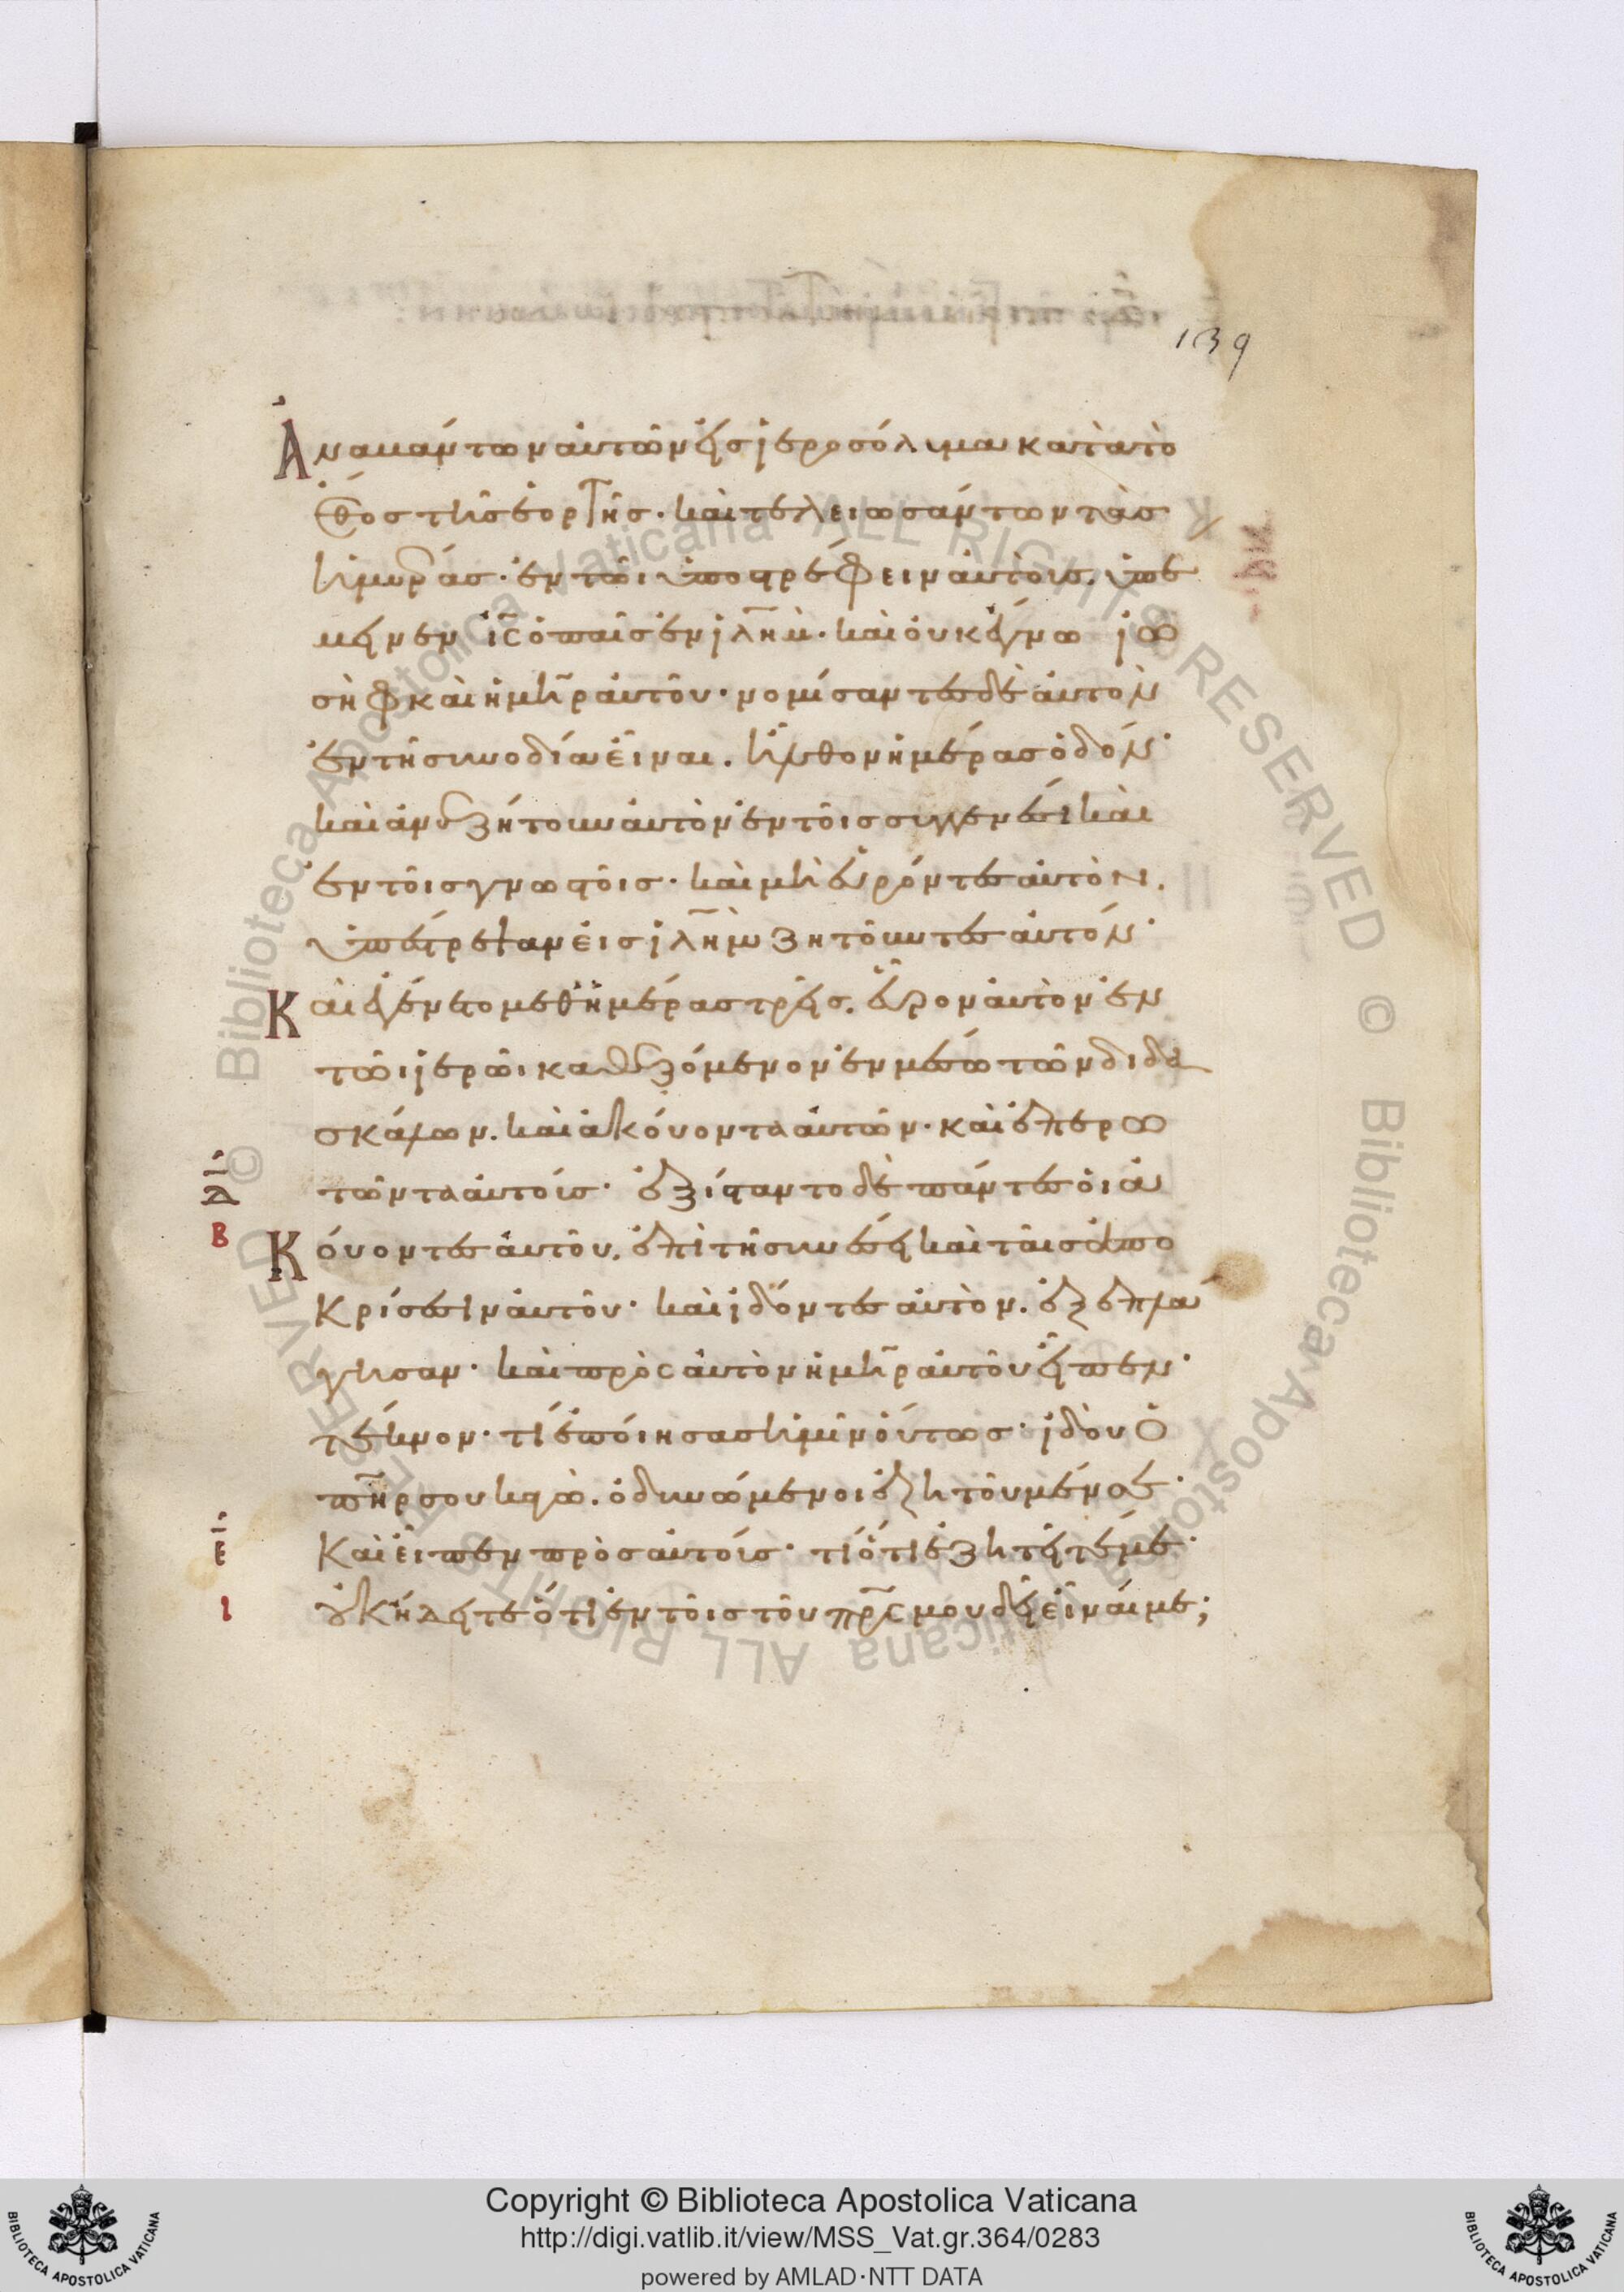 139
Ἀναβάντων αὐτῶν εἰς ἱεροσόλυμα κατὰ τὸ
ἔθος τῆς ἑορτῆς· καὶ τελειωσάντων τὰς
ἡμέρας· ἐν τῶι ὑποστρέφειν αὐτοὺς. ὑπέ
μεινεν ἰς ὁ παῖς ἐν ἰλὴμ· καὶ οὐκ ἔγνω ἰω
σὴφ καὶ ἡ μὴρ αὐτοῦ· νομίσαντες δὲ αὐτὸν
ἐν τῆ συνοδία εἶναι. ἦλθον ἡμέρας ὁδόν·
καὶ ἀνεζήτουν αὐτὸν ἐν τοῖς συγγενέσι καὶ
ἐν τοῖς γνωστοῖς· καὶ μὴ εὑρόντες αὐτὸν.
ὑπέστρεψαν εἰς ἰλὴμ ζητοῦντες αὐτόν·
Καὶ ἐγένετο μεθ ἡμέρας τρεῖς. εὗρον αὐτὸν ἐν
τῶι ἱερῶι καθεζόμενον ἐν μέσω τῶν διδα
σκάλων. καὶ ἀκούοντα αὐτῶν· καὶ ἐπερω
τῶντα αὐτούς· ἐξίσταντο δὲ πάντες οἱ ἀ
Κούοντες αὐτοῦ. ἐπὶ τῆ συνέσει καὶ ταῖς ἀπο
κρίσεσιν αὐτοῦ· καὶ ἰδόντες αὐτὸν. ἐξεπλά
γησαν· καὶ πρὸς αὐτὸν ἡ μὴρ αὐτοῦ εἶπεν·
τέκνον· τί ἐποίησας ἡμῖν οὕτως· ἰδοὺ ὁ
πὴρ σου κἀγὼ. ὀδυνώμενοι ἐζητοῦμέν σε·
Καὶ εἶπεν πρὸς αὐτούς· τί ὅτι ἐζητεῖτέ με·
οὐκ ἤδειτε ὅτι ἐν τοῖς τοῦ πρς μου δεῖ εἶναί με;
ιδ
β
ιε
ι
Copyright © Biblioteca Apostolica Vaticana
http://digi.vatlib.it/view/MSS_Vat.gr.364/0283
powered by AMLAD·NTT DATA
BIBLIOTECA APOSTOLICA VATICANA
BIBLIOTECA APOSTOLICA VATICANA
© Biblioteca Apostolica Vaticana ALL RIGHTS RESERVED © Biblioteca Apostolica Vaticana ALL RIGHTS RESERVED